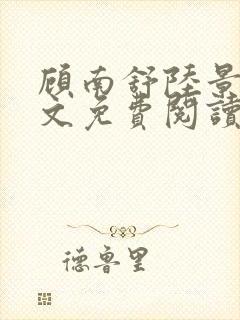 顧南舒陸景
文免費閱讀
德魯里